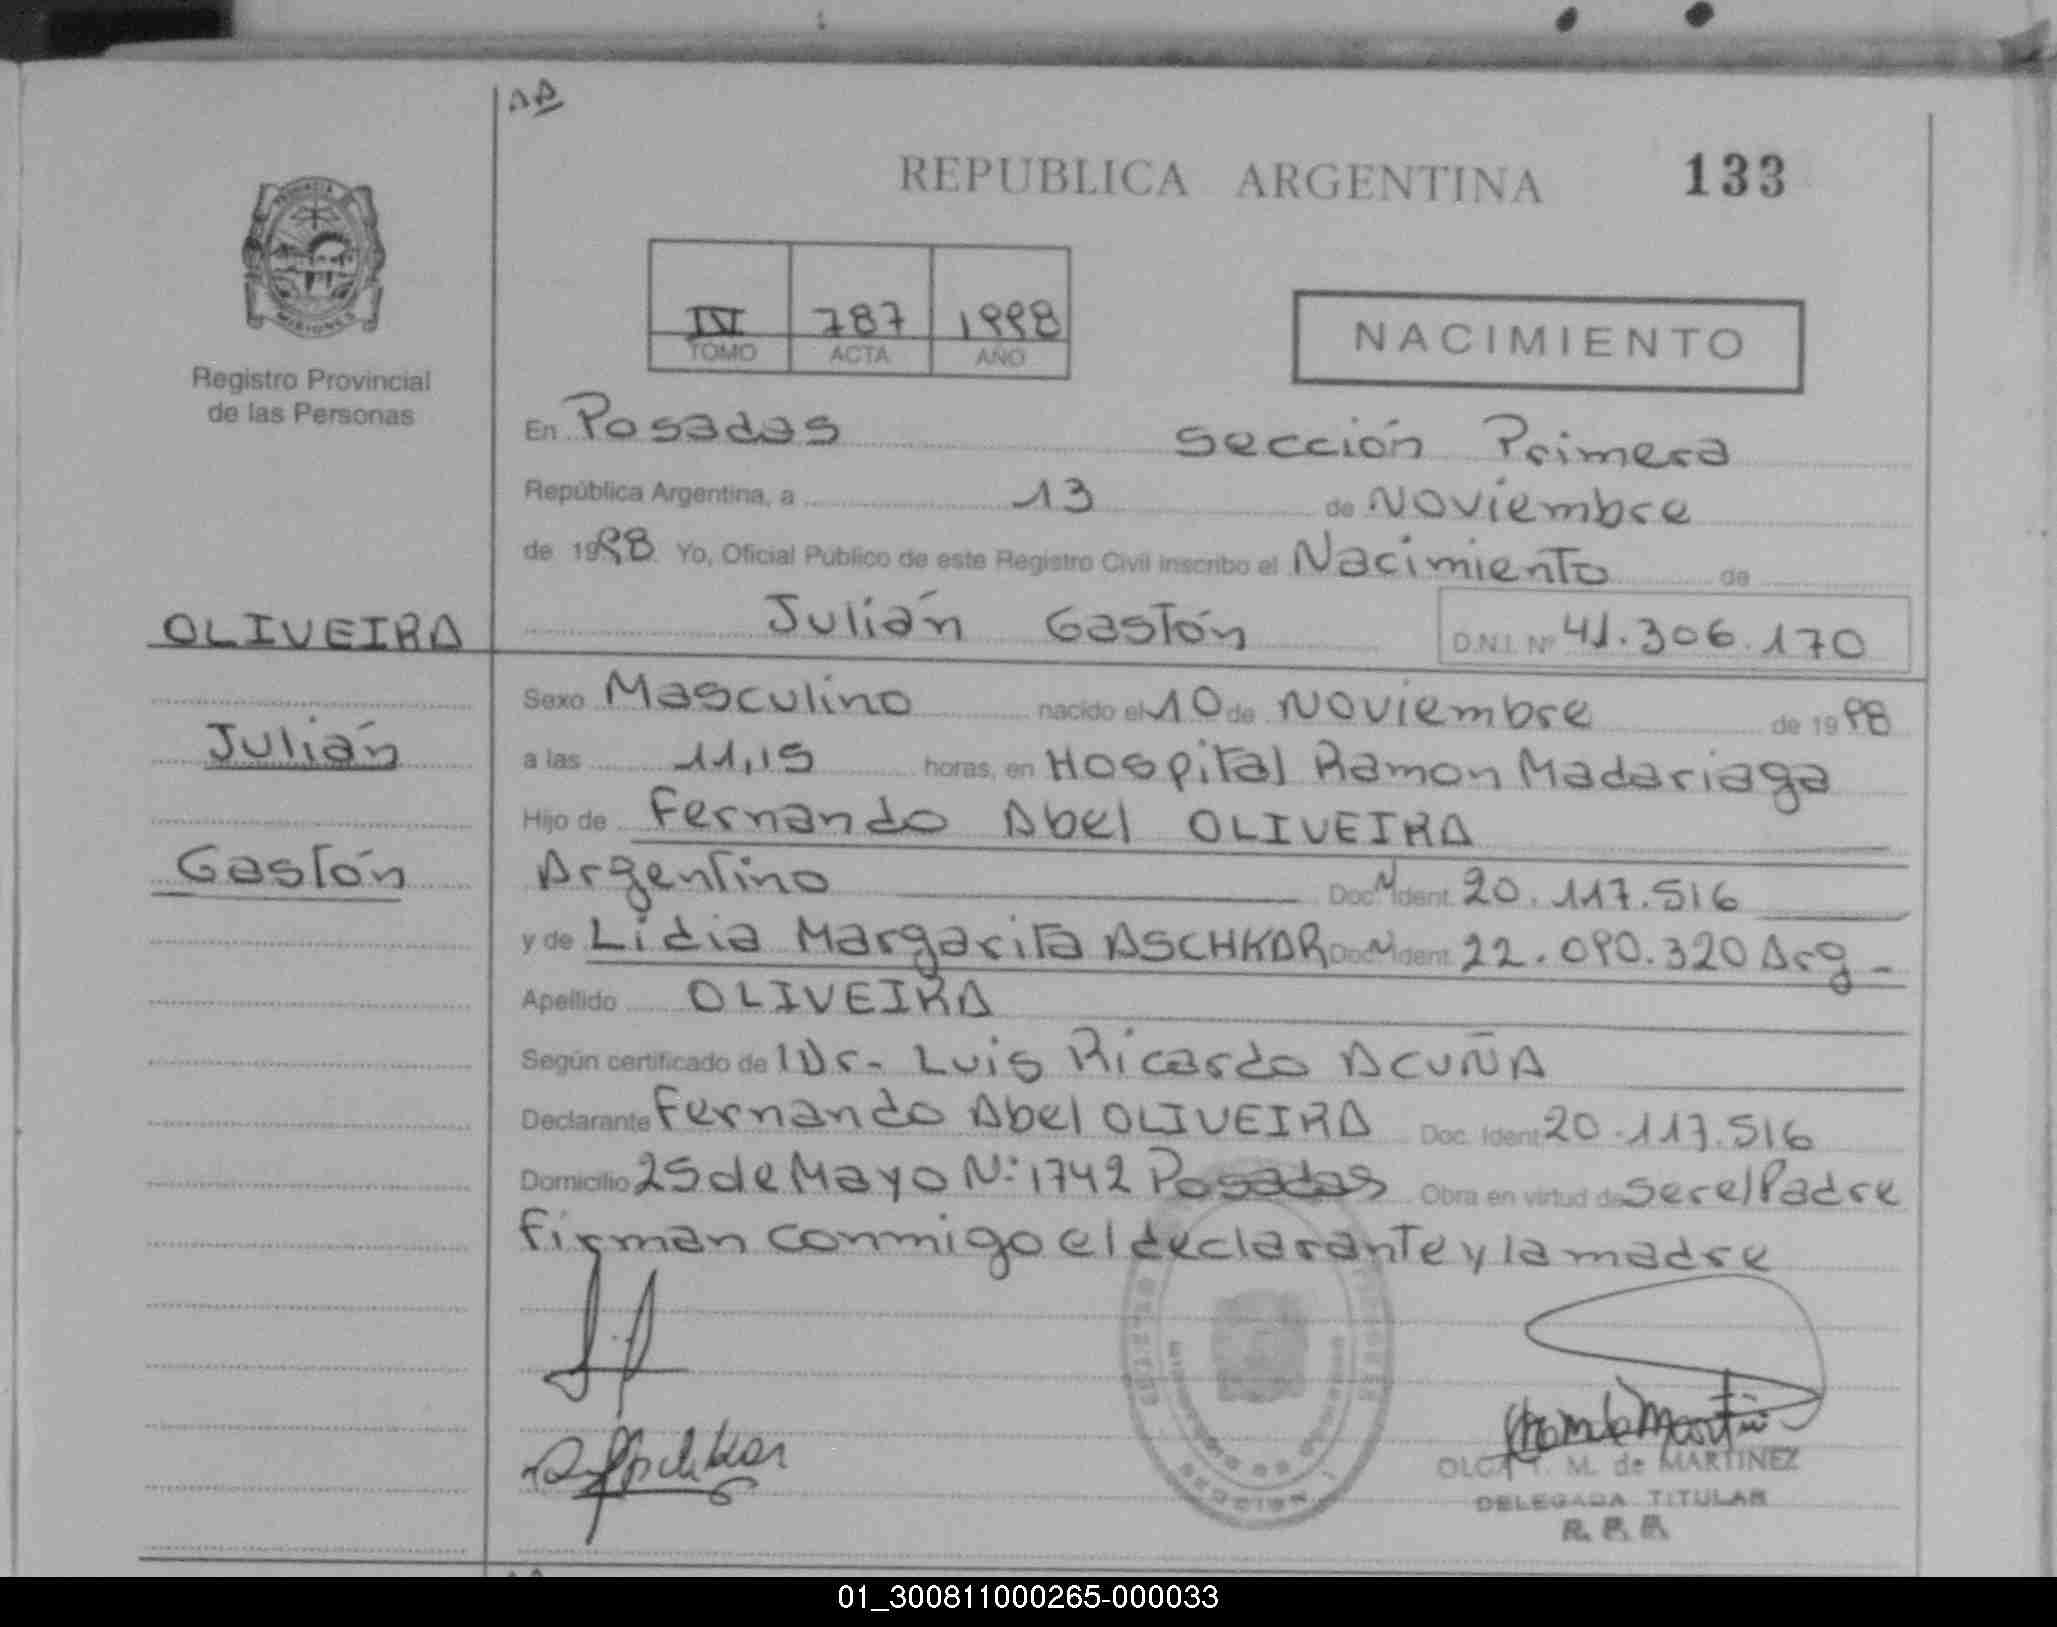 AA
REPUBLICA ARGENTINA 133
MISIONES
Registro Provincial
de las Personas
787 1998
TOMO ACTA AÑO
NACIMIENTO
En Posadas Sección Primera
República Argentina, a 13 de Noviembre
de 1998 Yo, Oficial Público de este Registro Civil inscribo el Nacimiento de
OLIVEIRA
Julián Gastón D.N.I. Nº 41.306.170
Sexo Masculino nacido el 10 de Noviembre de 1998
Julián
a las 11,15 horas, en Hospital Ramon Madariaga
Hijo de Fernando Abel OLIVEIRA
Gastón
Argentino Doc. N Ident. 20.117.516
y de Lidia Margarita ASCHKAR Doc. N Ident. 22.090.320 Arg -
Apellido OLIVEIRA
Según certificado de Dr. Luis Ricardo ACUÑA
Declarante Fernando Abel OLIVEIRA Doc. Ident 20.117.516
Domicilio 25 de Mayo Nº 1742 Posadas Obra en virtud de ser el Padre
firman conmigo el declarante y la madre
SECCION 1
OLGA T. M. de MARTINEZ
DELEGADA TITULAR
R. P. P.
01_300811000265-000033